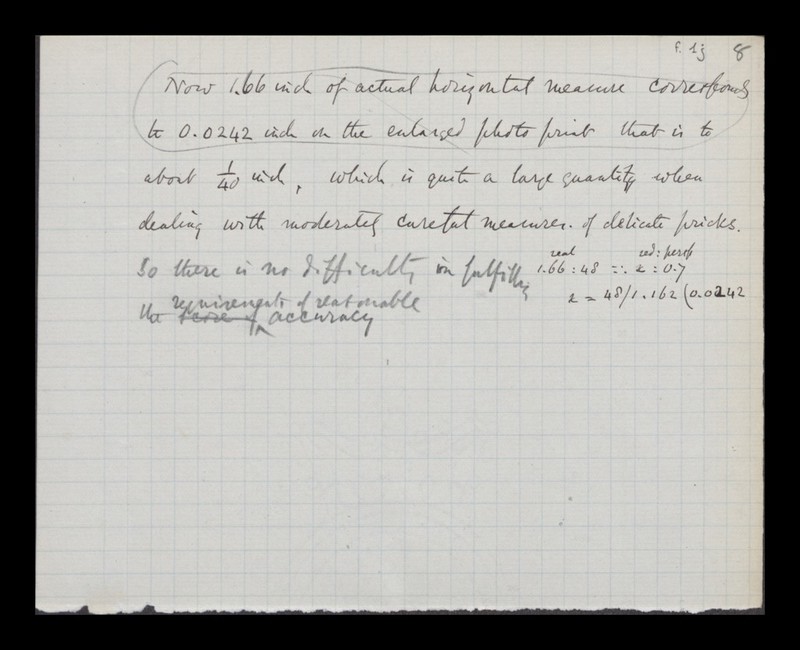 f. 1j 8
Now 1.66 inch of actual horizontal measure corresponds
to 0.0242 inch on the enlarged photo print that is to
about 1/40 inch, which is quite a large quantity when
dealing with moderately careful measures. of delicate pricks.
So there is no difficulty in fulfilling
requirements of reasonable
the accuracy
real red: persp
1.66 : 48 ::. x : 0.7
x = 48/1.162 (0.0242